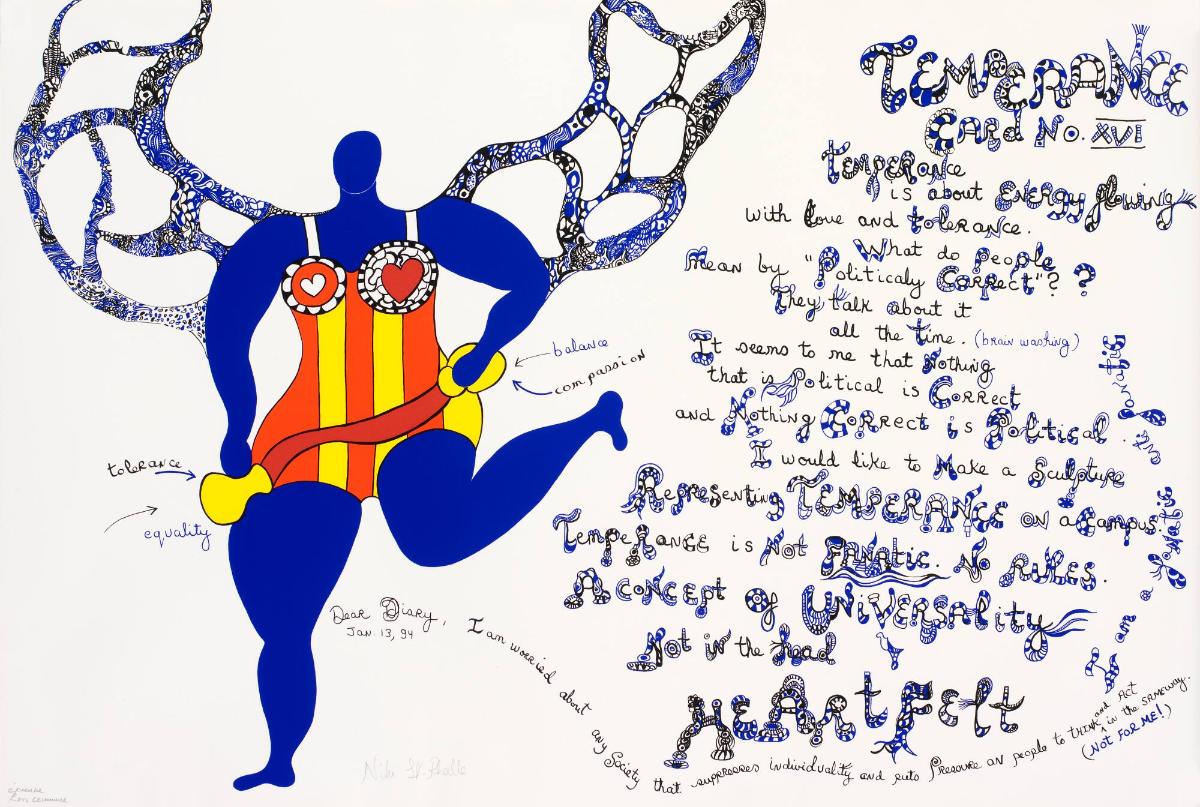 TEMPERANCE
CARD No. XVI
temperance
is about ENERGY flowing
with love and tolerance.
What do People
mean by "Politicaly Correct"? ?
They talk about it
all the time. (brain washing)
It seems to me that Nothing
that is Political is Correct
and Nothing Correct is Political.
I would like to Make a Sculpture
Representing TEMPERANCE on a Campus.
Temperance is Not FANATIC. No RULES.
A concept of UNIVERSALITY
Not in the head
HEARTFELT
balance
compassion
tolerance
equality
Dear Diary,
Jan. 13, 94
I am worried about any Society that suppresses individuality and puts Pressure on people to THINK and Act in the SAME way.
(NOT FOR ME!)
are a
Niki St. Phalle